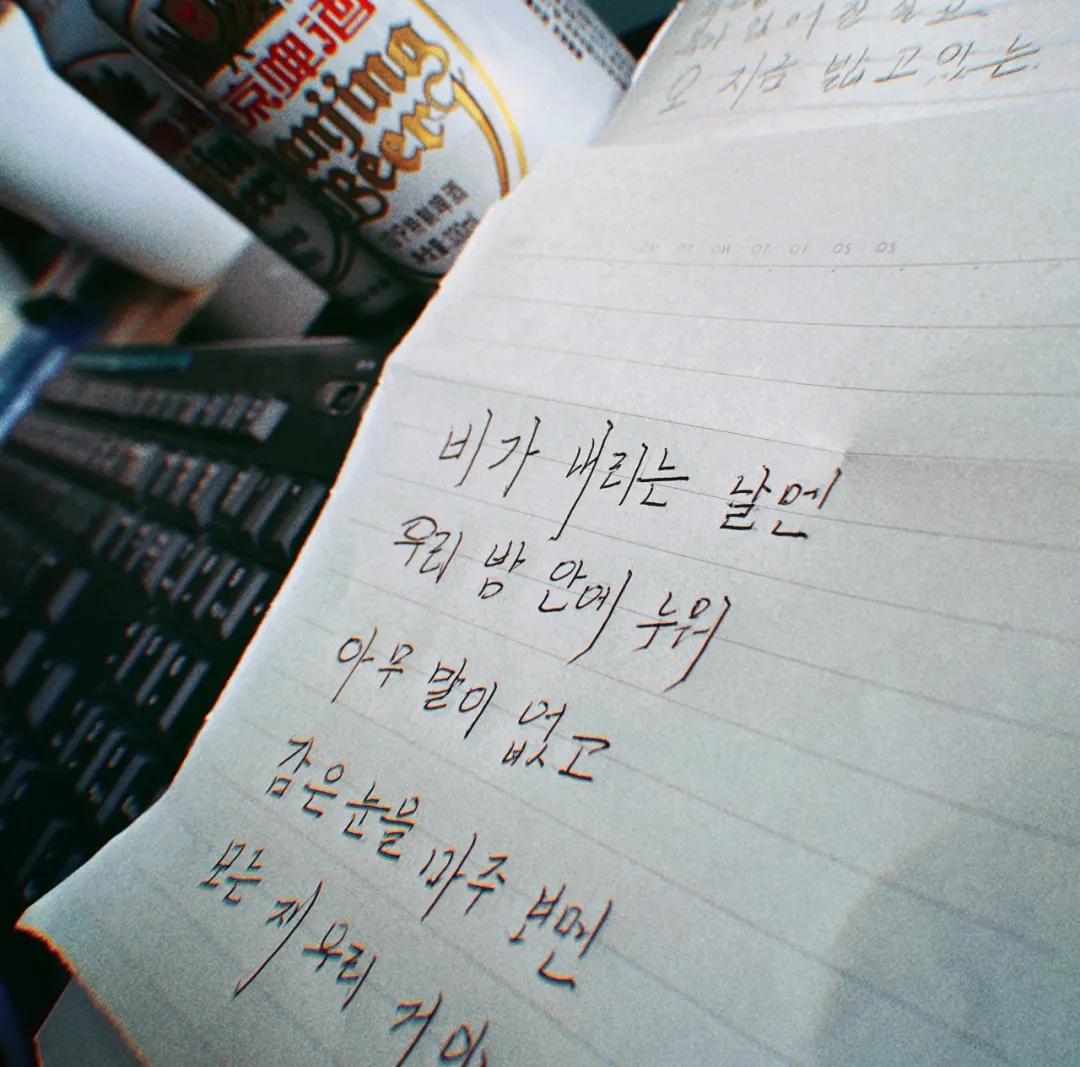 京啤酒
anjing
Beer
오 지금 밟고 있는
비가 내리는 날엔
우리 방 안에 누워
아무 말이 없고
감은 눈을 마주 보면
모든 게 우리